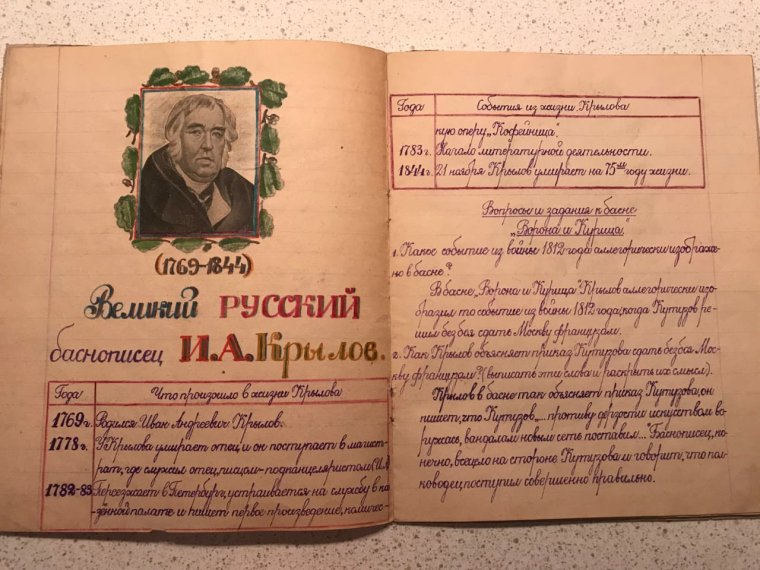 (1769-1844)
Великий РУССКИЙ
баснописец И.А.Крылов.
Года Что произошло в жизни Крылова
1769г. Родился Иван Андреевич Крылов.
1778г. У Крылова умирает отец, и он поступает в магист-
рат, где служил отец, писцом-подканцеляристом (И.А
1782-83 Переезжает в Петербург, устраивается на службу в ка-
зённой палате и пишет первое произведение, комичес-
Года События из жизни Крылова
кую оперу „Кофейница".
1783г. Начало литературной деятельности.
1844г. 21 ноября Крылов умирает на 75ом году жизни.
Вопросы и задания к басне
„Ворона и Курица".
1. Какое событие из войны 1812 года аллегорически изображе-
но в басне?
В басне „Ворона и Курица" Крылов аллегорически изо-
бразил то событие из войны 1812 года, когда Кутузов ре-
шил без боя сдать Москву французам.
2. Как Крылов объясняет приказ Кутузова сдать без боя Мос-
кву французам? (выписать эти слова и раскрыть их смысл).
Крылов в басне так объясняет приказ Кутузова, он
пишет, что Кутузов... противу дерзости искусством во-
ружась, вандалам новым сеть поставил..." Баснописец, ко-
нечно, всецело на стороне Кутузова и говорит, что пол-
ководец поступил совершенно правильно.